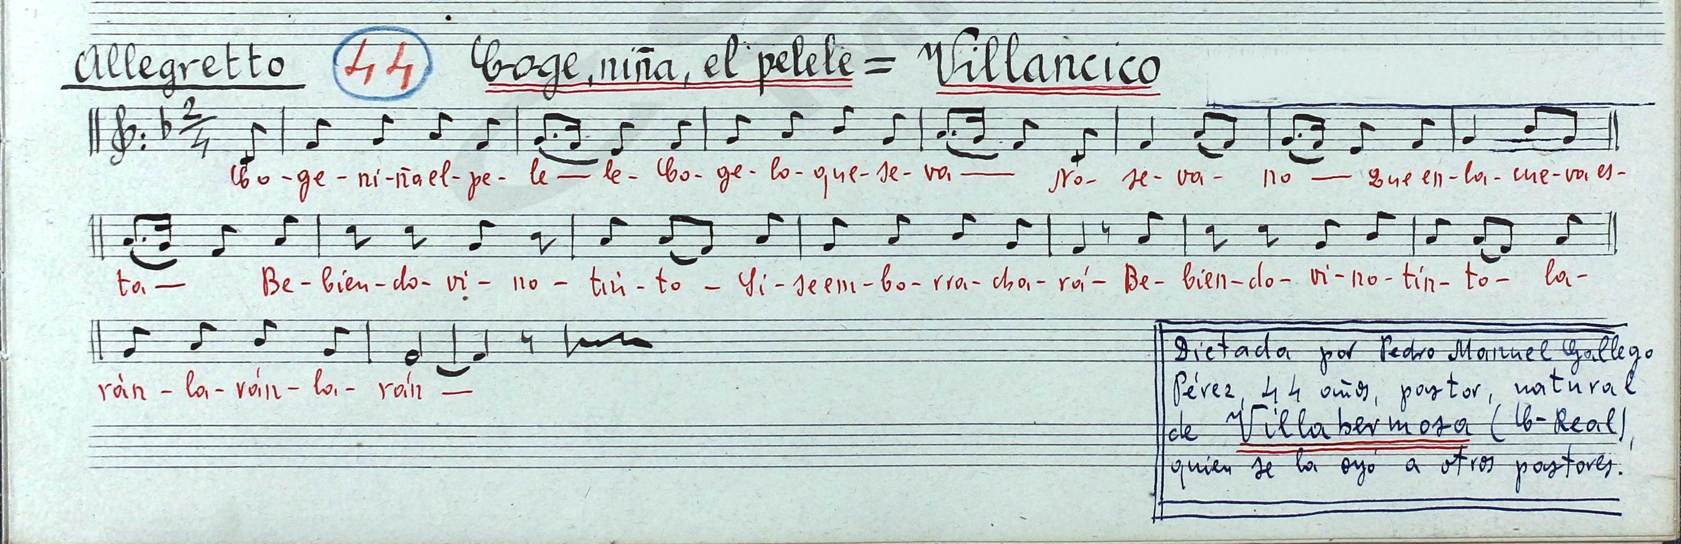 Allegretto 44 Coge, niña, el pelele = Villancico
2/4
Co-ge-ni-ñael-pe-le-le-Co-ge-lo-que-se-va- No-se-va-no-Que en-la-cue-va es-
ta- Be-bien-do-vi-no-tin-to-Si-se em-bo-rra-cha-rá-Be-bien-do-vi-no-tín-to-la-
rán-la-rán-la-rán-
Dictada por Pedro Manuel Gallego
Pérez, 44 años, pastor, natural
de Villahermosa (C-Real),
quien se la oyó a otros pastores.